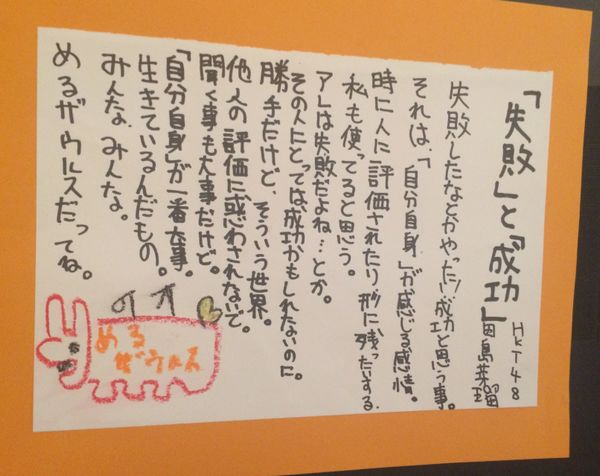 「失敗」と「成功」
HKT48
田島芽瑠
失敗したなとかやったい!成功と思う事。
それは、「自分自身」が感じる感情。
時に人に評価されたり形に残ったりする。
私も使ってると思う。
アレは失敗だよね…とか。
その人にとっては、成功かもしれないのに。
勝手だけど、そういう世界。
他人の評価に惑わされないで。
聞く事も大事だけど。
「自分自身」が一番大事。
生きているんだもの。
みんな、みんな。
めるザウルスだってね。
める
ザウルス